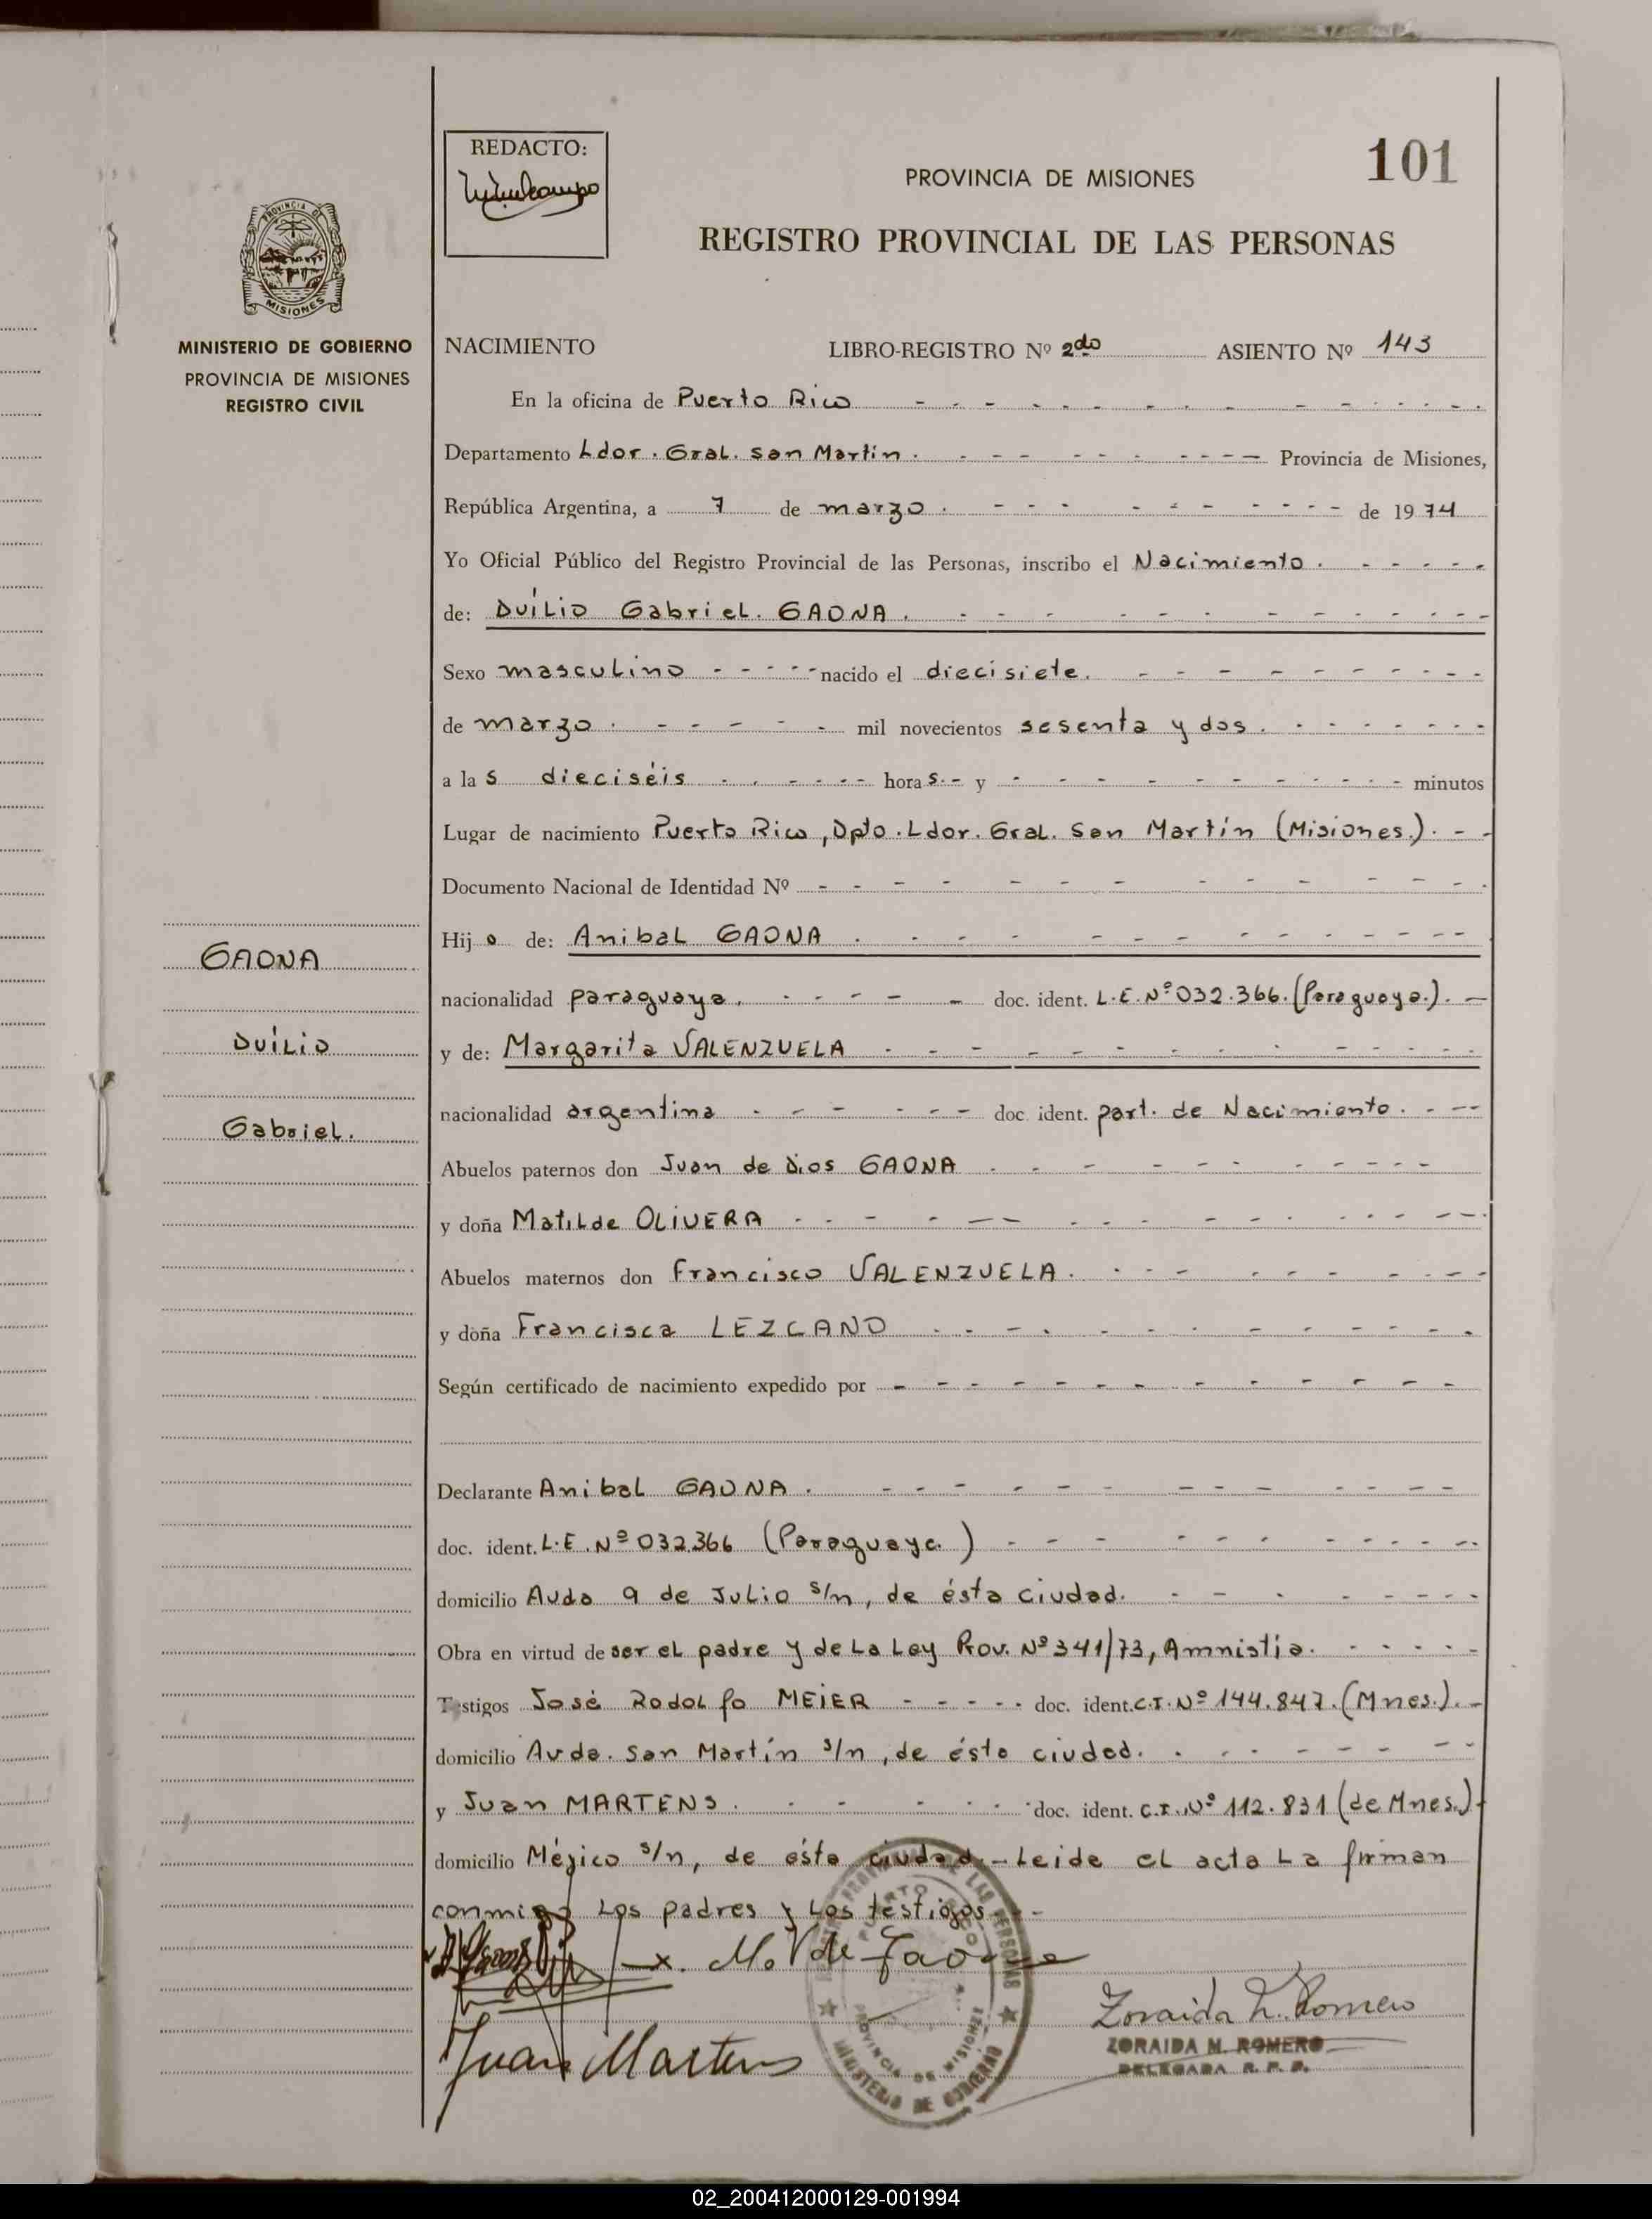 REDACTO:
101
PROVINCIA DE MISIONES
REGISTRO PROVINCIAL DE LAS PERSONAS
PROVINCIA DE
MISIONES
MINISTERIO DE GOBIERNO
PROVINCIA DE MISIONES
REGISTRO CIVIL
NACIMIENTO LIBRO-REGISTRO Nº 2do ASIENTO Nº 143
En la oficina de Puerto Rico
Departamento Ldor. Gral. San Martín. Provincia de Misiones,
República Argentina, a 7 de marzo. de 1974
Yo Oficial Público del Registro Provincial de las Personas, inscribo el Nacimiento.
de: Duílio Gabriel. GAONA.
Sexo masculino nacido el diecisiete.
de marzo. mil novecientos sesenta y dos.
a las dieciséis horas.- y - minutos
Lugar de nacimiento Puerto Rico, Dpto. Ldor. Gral. San Martín (Misiones.).
Documento Nacional de Identidad Nº
Hijo de: Anibal GAONA.
nacionalidad paraguaya. doc. ident. L.E. Nº 032.366. (Paraguaya.).
y de: Margarita VALENZUELA
nacionalidad argentina doc. ident. part. de Nacimiento.
Abuelos paternos don Juan de Dios GAONA
y doña Matilde OLIVERA
Abuelos maternos don Francisco VALENZUELA.
y doña Francisca LEZCANO
Según certificado de nacimiento expedido por
Declarante Anibal GAONA.
doc. ident. L.E. Nº 032.366 (Paraguaya.)
domicilio Avda 9 de Julio s/n, de ésta ciudad.
Obra en virtud de ser el padre y de La Ley Prov. Nº 341/73, Amnistía.
Testigos José Rodolfo MEIER doc. ident. C.I. Nº 144.847. (Mnes.).
domicilio Avda. San Martín s/n, de ésta ciudad.
y Juan MARTENS. doc. ident. C.I. Nº 112.831 (de Mnes.)
domicilio Méjico s/n, de ésta ciudad.- Leida el acta La firman
conmigo Los padres y Los testigos.-
GAONA
Duílio
Gabriel.
x. M. V de Gaona
Juan Martens
Zoraida M. Romero
ZORAIDA M. ROMERO
DELEGADA R. P. P.
PUERTO RICO
PROVINCIA DE MISIONES
MINISTERIO DE GOBIERNO
02_200412000129-001994